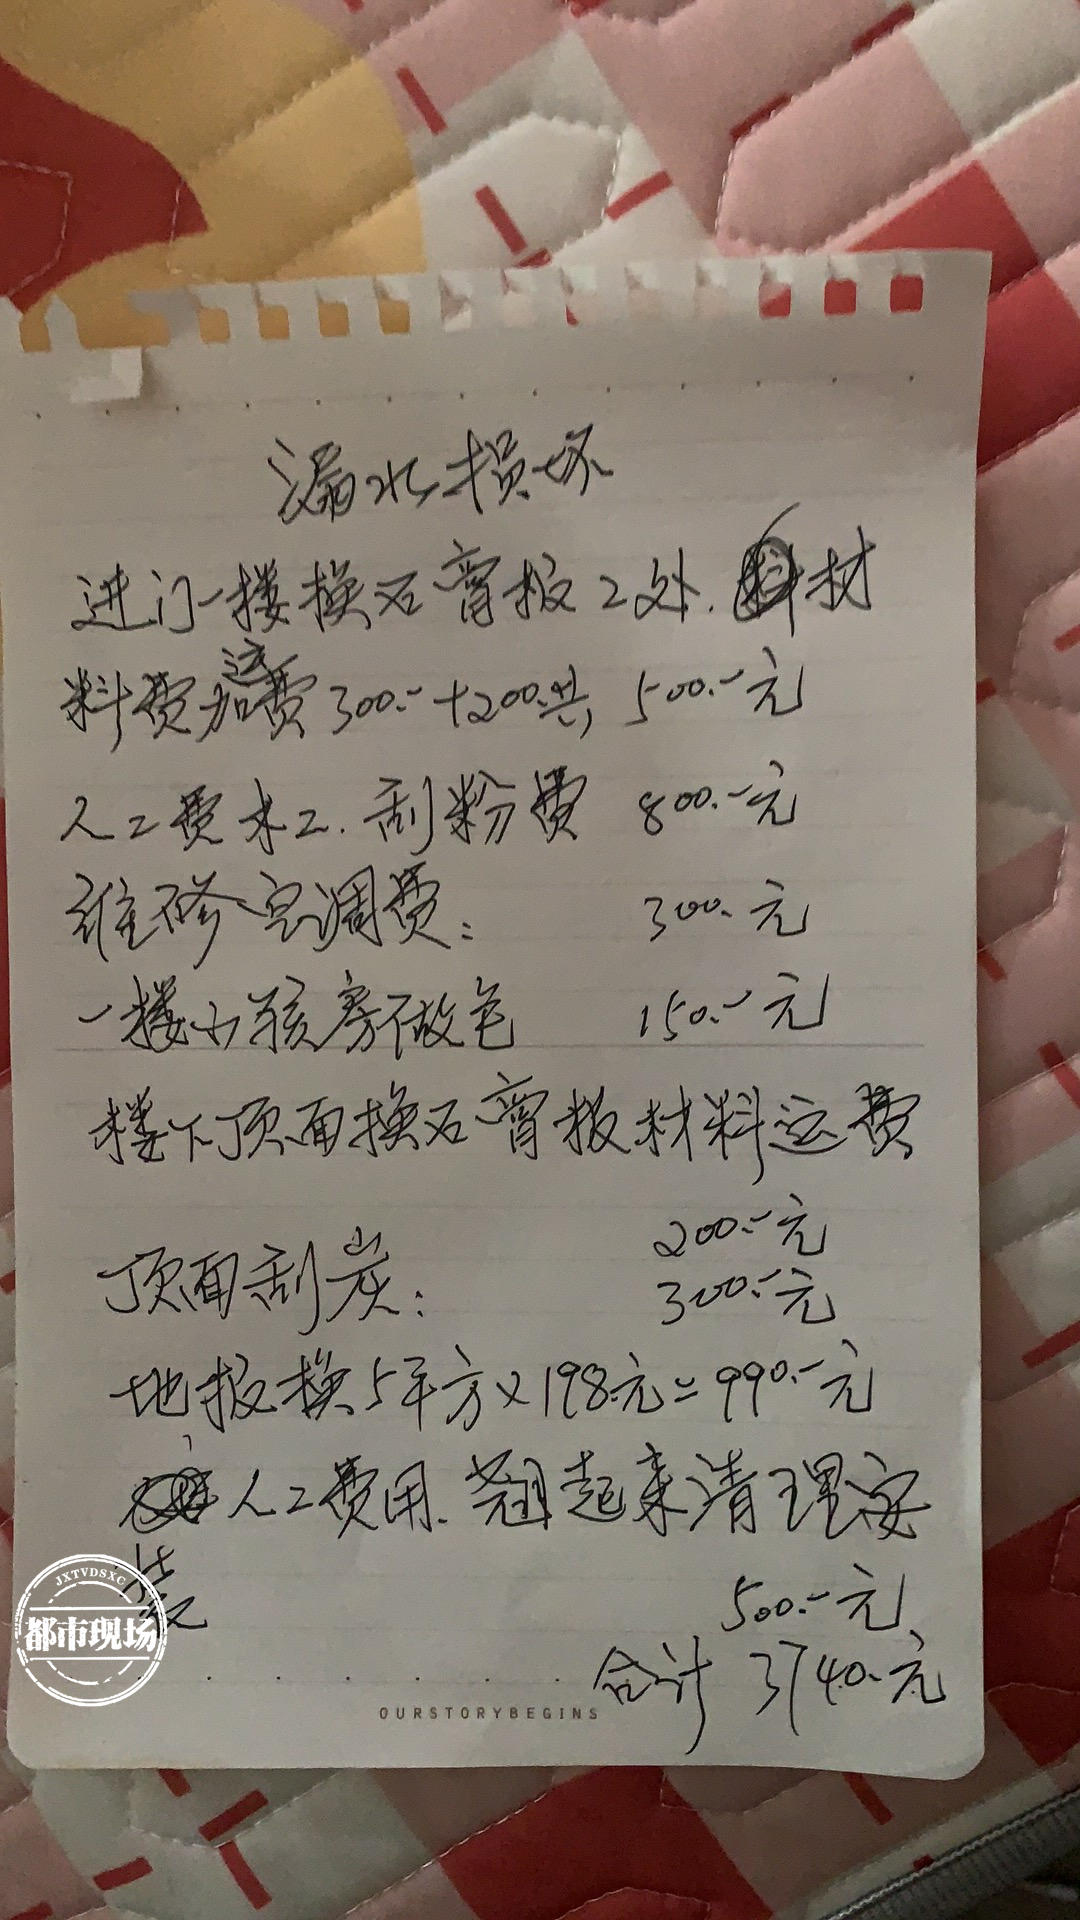 漏水损坏
进门一楼换石膏板2处.材
料费加运费300.-+200.共500.-元
人工费木工.刮粉费 800.-元
维修空调费: 300.-元
一楼小孩房不放包 150.-元
楼下顶面换石膏板材料运费
200.-元
顶面刮炭: 300.-元
地板换5平方×198元=990.-元
人工费用.翘起来清理安
装 500.-元
合计 3740.-元
OURSTORYBEGINS
JXTVDSXC
都市现场